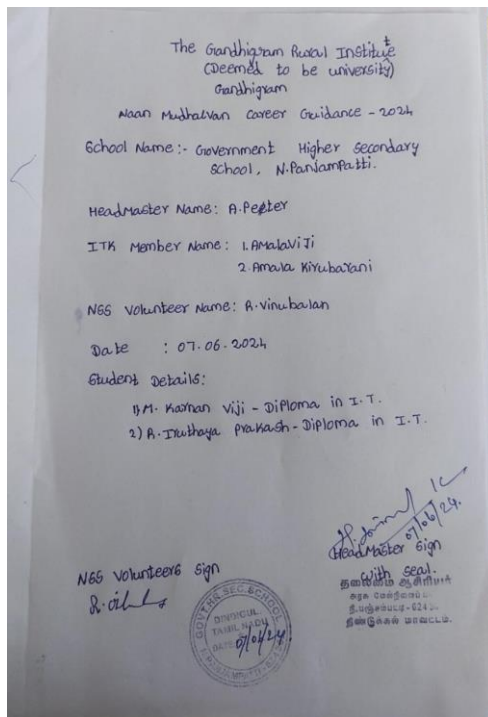 The Gandhigram Rural Institute
(Deemed to be university)
Gandhigram
Naan Mudhalvan Career Guidance - 2024
School Name:- Government Higher Secondary
School, N.Panjampatti.
HeadMaster Name: A.Peter
ITK Member Name: 1.AmalaViji
2.Amala Kirubarani
NSS Volunteer Name: R.Vinubalan
Date : 07.06.2024
Student Details:
1) M. Karnan Viji - Diploma in I.T.
2) R. Iruthaya Prakash - Diploma in I.T.
07/06/24.
HeadMaster Sign
with Seal.
தலைமை ஆசிரியர்
அரசு மேல்நிலைப்
திண்டுக்கல் மாவட்டம்.
NSS Volunteers Sign
GOVT.HR.SEC.SCHOOL
DINDIGUL
TAMIL NADU
DATE
07/06/24